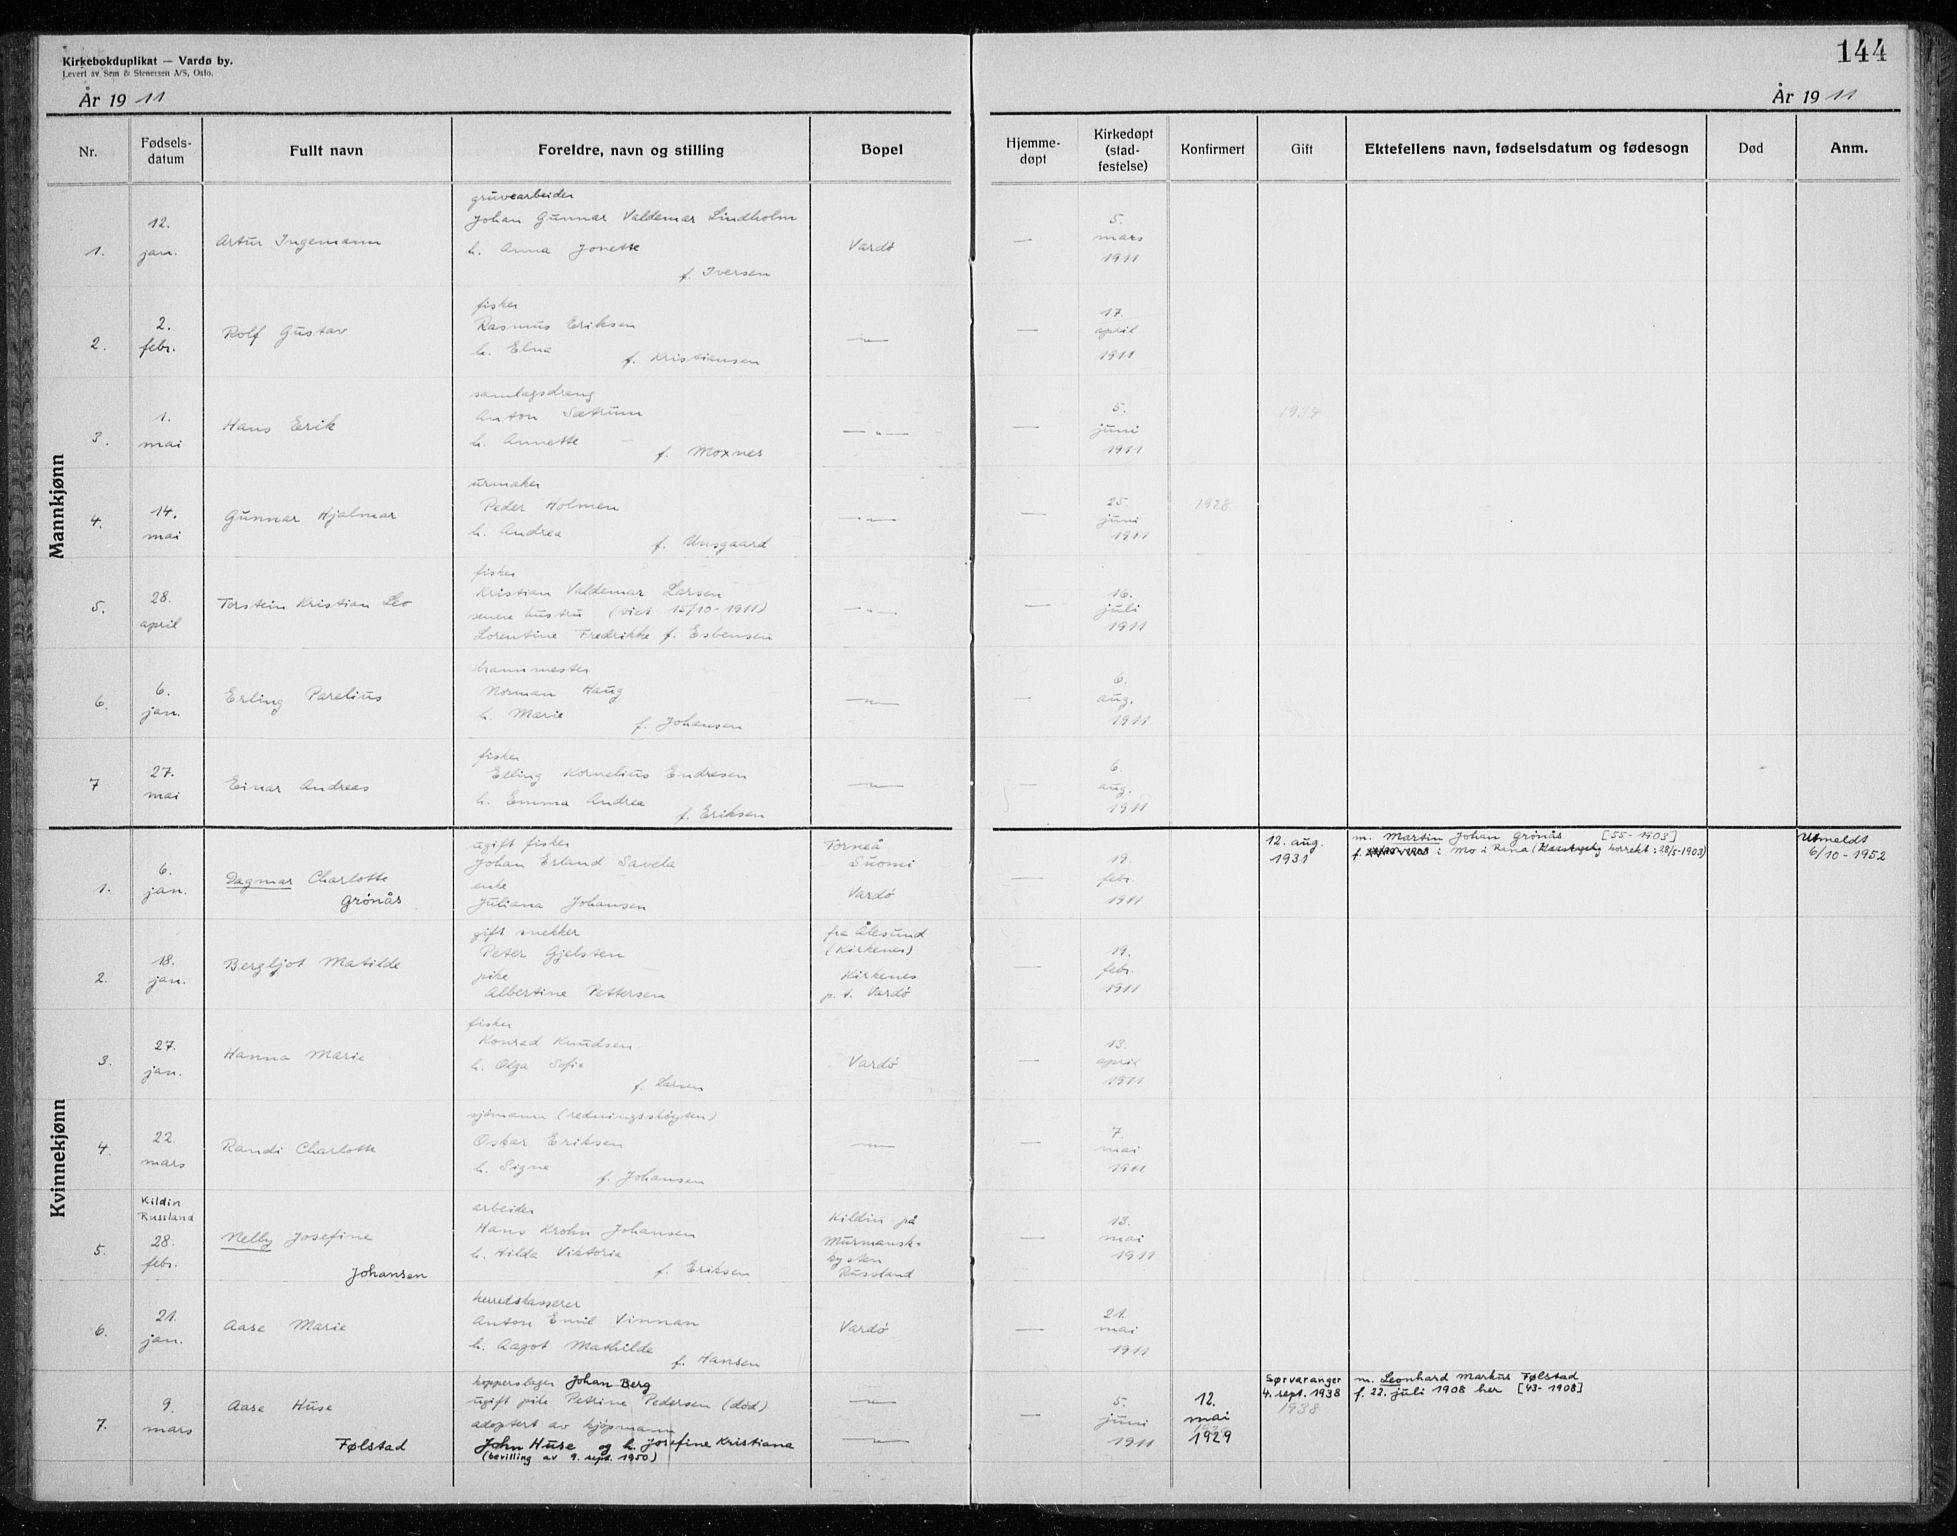 144
Kirkebokduplikat — Vardø by.
Levert av Sem & Stenersen A/S, Oslo.
År 19 11
År 19 11
Nr.
Fødsels-
datum
Fullt navn
Foreldre, navn og stilling
Bopel
Hjemme-
døpt
Kirkedøpt
(stad-
festelse)
Konfirmert
Gift
Ektefellens navn, fødselsdatum og fødesogn
Død
Anm.
Mannkjønn
1.
12.
jan.
Artur Ingemann
gruvearbeider
Johan Gunnar Valdemar Lindholm
h. Anna Jonette
f. Iversen
Vardø
—
5.
mars
1911
2.
2.
febr.
Rolf Gustav
fisker
Rasmus Eriksen
h. Elna f. Kristiansen
—"—
—
17.
april
1911
3.
1.
mai
Hans Erik
samlagsdreng
Anton Sætrum
h. Annette —
f. Moxnes
—"—
—
5.
juni
1911
1934
4.
14.
mai
Gunnar Hjalmar
urmaker
Peder Holmen
h. Andrea
f. Unsgaard
—"—
—
25.
juni
1911
1928
5.
28.
april
Torstein Kristian Leo
fisker
Kristian Valdemar Larsen
senere hustru (viet 15/10-1911)
Lorentine Fredrikke f. Esbensen
—"—
—
16.
juli
1911
6.
6.
jan.
Erling Parelius
brannmester
Norman Haug
h. Marie f. Johansen
—"—
—
6.
aug.
1911
7
27.
mai
Einar Andreas
fisker
Elling Kornelius Endresen
h. Emma Andrea
f. Eriksen
—"—
—
6.
aug.
1911
Kvinnekjønn
1.
6.
jan.
Dagmar Charlotte
Grönås
ugift fisker
Johan Erland Savela
enke
Juliana Johansen
Torneå
Suomi
Vardø
—
19.
febr.
1911
12. aug.
1931
m. Martin Johan Grönås [55-1903]
f. i Mo i Rana ( korrekt: 28/5-1903)
Utmeldt
6/10-1952
2.
18.
jan.
Bergljot Matilde
gift snekker
Peter Gjelsten
pike
Albertine Pettersen
fra Ålesund
(Kirkenes)
Kirkenes
p. t. Vardø
—
19.
febr.
1911
3.
27.
jan.
Hanna Marie
fisker
Konrad Knudsen
h. Olga Sofie
f. Larsen
Vardø
—
13.
april
1911
4.
22.
mars
Randi Charlotte
sjømann (redningsskøyten)
Oskar Eriksen
h. Signe
f. Johansen
—"—
—
7.
mai
1911
5.
Kildin
Russland
28.
febr.
Nelly Josefine
Johansen
arbeider
Hans Krohn Johansen
h. Hilda Viktoria
f. Eriksen
Kildin på
Murmansk-
kysten
Russland
—
13.
mai
1911
6.
21.
jan.
Aase Marie
herredskasserer
Anton Emil Vinnan
h. Aagot Mathilde
f. Hansen
Vardø
—
21.
mai
1911
7.
9.
mars
Aase Huse
Følstad
kopperslager Johan Berg
ugift pike Petrine Pedersen (død)
adoptert av kjøpmann
John Huse og h. Josefine Kristiana
(bevilling av 9. sept. 1950)
—"—
—"—
—
5.
juni
1911
12.
mai
1929
Sørvaranger
4. sept. 1938
1938
m. Leonhard Markus Følstad
f. 22. juli 1908 her [43-1908]